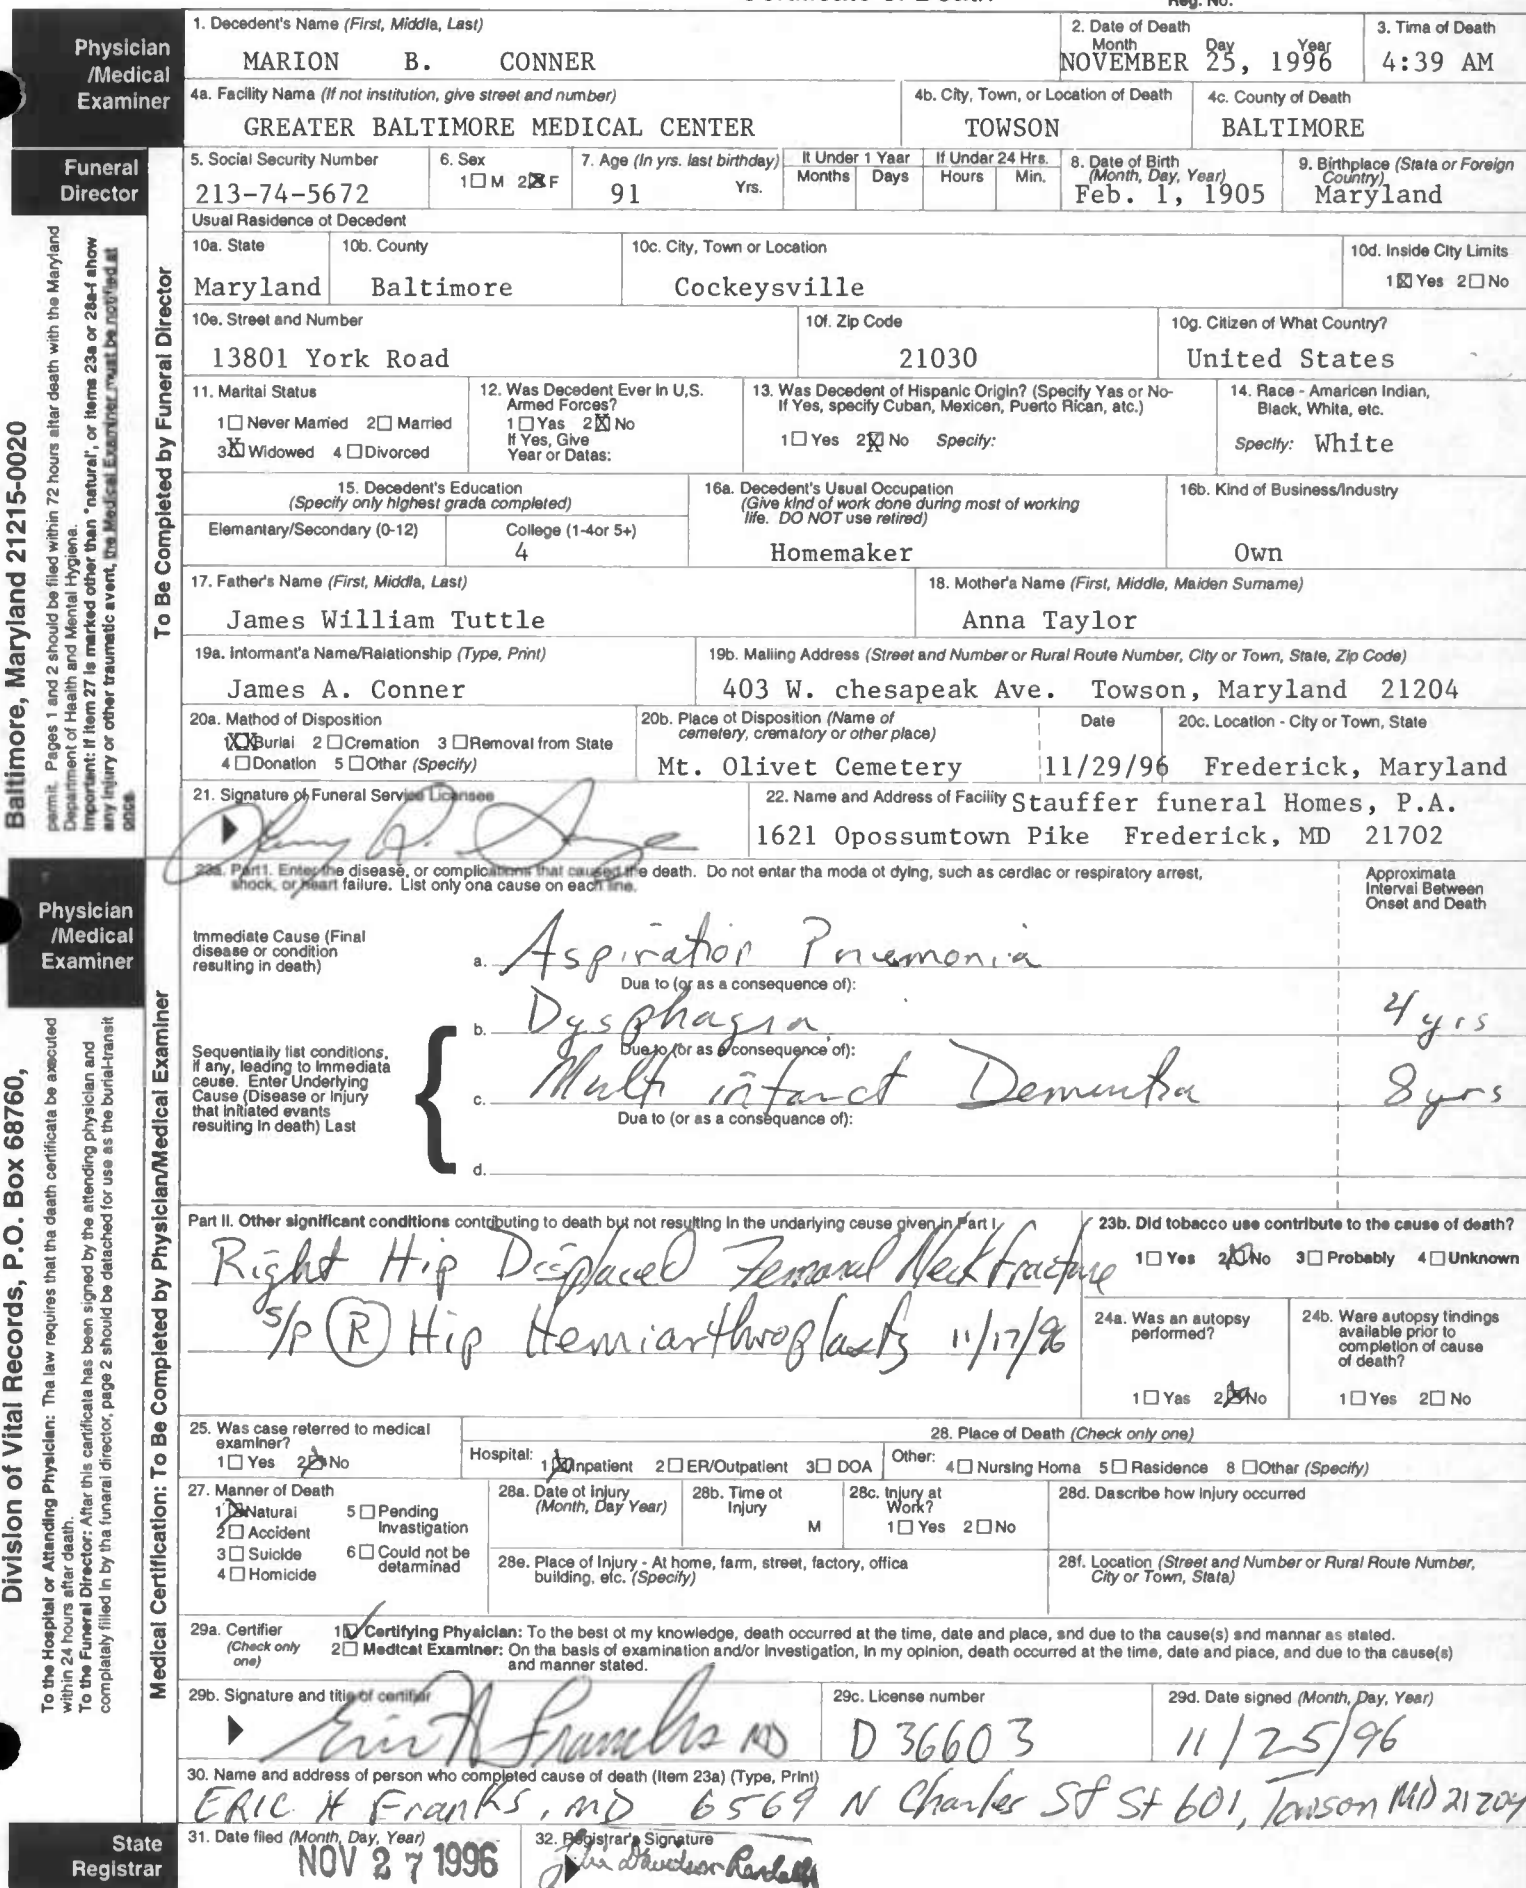 Reg. No.
Physician /Medical Examiner
1. Decedent's Name (First, Middle, Last)
MARION B. CONNER
2. Date of Death
Month Day Year
NOVEMBER 25, 1996
3. Time of Death
4:39 AM
4a. Facility Name (If not institution, give street and number)
GREATER BALTIMORE MEDICAL CENTER
4b. City, Town, or Location of Death
TOWSON
4c. County of Death
BALTIMORE
Funeral Director
5. Social Security Number
213-74-5672
6. Sex
1☐ M 2☒ F
7. Age (In yrs. last birthday)
91 Yrs.
If Under 1 Year
Months Days
If Under 24 Hrs.
Hours Min.
8. Date of Birth
(Month, Day, Year)
Feb. 1, 1905
9. Birthplace (State or Foreign
Country)
Maryland
Usual Residence of Decedent
10a. State
Maryland
10b. County
Baltimore
10c. City, Town or Location
Cockeysville
10d. Inside City Limits
1☒ Yes 2☐ No
10e. Street and Number
13801 York Road
10f. Zip Code
21030
10g. Citizen of What Country?
United States
11. Marital Status
1☐ Never Married 2☐ Married
3☒ Widowed 4☐ Divorced
12. Was Decedent Ever in U,S.
Armed Forces?
1☐ Yes 2☒ No
If Yes, Give
Year or Dates:
13. Was Decedent of Hispanic Origin? (Specify Yes or No-
If Yes, specify Cuban, Mexican, Puerto Rican, etc.)
1☐ Yes 2☒ No Specify:
14. Race - American Indian,
Black, White, etc.
Specify: White
15. Decedent's Education
(Specify only highest grade completed)
Elementary/Secondary (0-12)
College (1-4or 5+)
4
16a. Decedent's Usual Occupation
(Give kind of work done during most of working
life. DO NOT use retired)
Homemaker
16b. Kind of Business/Industry
Own
17. Father's Name (First, Middle, Last)
James William Tuttle
18. Mother's Name (First, Middle, Maiden Surname)
Anna Taylor
19a. Informant's Name/Relationship (Type, Print)
James A. Conner
19b. Mailing Address (Street and Number or Rural Route Number, City or Town, State, Zip Code)
403 W. chesapeak Ave. Towson, Maryland 21204
20a. Method of Disposition
1☒ Burial 2☐ Cremation 3☐ Removal from State
4☐ Donation 5☐ Other (Specify)
20b. Place of Disposition (Name of
cemetery, crematory or other place)
Mt. Olivet Cemetery
Date
11/29/96
20c. Location - City or Town, State
Frederick, Maryland
21. Signature of Funeral Service Licensee
22. Name and Address of Facility Stauffer funeral Homes, P.A.
1621 Opossumtown Pike Frederick, MD 21702
Physician /Medical Examiner
23a. Part1. Enter the disease, or complications that caused the death. Do not enter the mode of dying, such as cardiac or respiratory arrest,
shock, or heart failure. List only one cause on each line.
Approximate
Interval Between
Onset and Death
Immediate Cause (Final
disease or condition
resulting in death)
a. Aspiration Pneumonia
Due to (or as a consequence of):
b. Dysphagia 4 yrs
Due to (or as a consequence of):
Sequentially list conditions,
if any, leading to immediate
cause. Enter Underlying
Cause (Disease or injury
that initiated events
resulting in death) Last
c. Multi infarct Dementia 8 yrs
Due to (or as a consequence of):
d.
Part II. Other significant conditions contributing to death but not resulting in the underlying cause given in Part I.
Right Hip Displaced Femoral Neck fracture
S/P (R) Hip Hemiarthroplasty 11/17/96
23b. Did tobacco use contribute to the cause of death?
1☐ Yes 2☒ No 3☐ Probably 4☐ Unknown
24a. Was an autopsy
performed?
1☐ Yes 2☒ No
24b. Were autopsy findings
available prior to
completion of cause
of death?
1☐ Yes 2☐ No
25. Was case referred to medical
examiner?
1☐ Yes 2☒ No
28. Place of Death (Check only one)
Hospital: 1☒ Inpatient 2☐ ER/Outpatient 3☐ DOA
Other: 4☐ Nursing Home 5☐ Residence 8☐ Other (Specify)
27. Manner of Death
1☒ Natural 5☐ Pending
Investigation
2☐ Accident
3☐ Suicide 6☐ Could not be
determined
4☐ Homicide
28a. Date of Injury
(Month, Day Year)
28b. Time of
Injury
M
28c. Injury at
Work?
1☐ Yes 2☐ No
28d. Describe how injury occurred
28e. Place of Injury - At home, farm, street, factory, office
building, etc. (Specify)
28f. Location (Street and Number or Rural Route Number,
City or Town, State)
29a. Certifier
(Check only
one)
1☑ Certifying Physician: To the best of my knowledge, death occurred at the time, date and place, and due to the cause(s) and manner as stated.
2☐ Medical Examiner: On the basis of examination and/or investigation, in my opinion, death occurred at the time, date and place, and due to the cause(s)
and manner stated.
29b. Signature and title of certifier
Eric H Franks MD
29c. License number
D 36603
29d. Date signed (Month, Day, Year)
11/25/96
30. Name and address of person who completed cause of death (Item 23a) (Type, Print)
ERIC H Franks, MD 6569 N Charles St St 601, Towson MD 21204
State Registrar
31. Date filed (Month, Day, Year)
NOV 27 1996
32. Registrar's Signature
Baltimore, Maryland 21215-0020
permit. Pages 1 and 2 should be filed within 72 hours after death with the Maryland
Department of Health and Mental Hygiene.
Important: If item 27 is marked other than "natural", or items 23a or 28a-f show
any injury or other traumatic event, the Medical Examiner must be notified at
once.
To Be Completed by Funeral Director
Division of Vital Records, P.O. Box 68760,
To the Hospital or Attending Physician: The law requires that the death certificate be executed
within 24 hours after death.
To the Funeral Director: After this certificate has been signed by the attending physician and
completely filled in by the funeral director, page 2 should be detached for use as the burial-transit
Medical Certification: To Be Completed by Physician/Medical Examiner